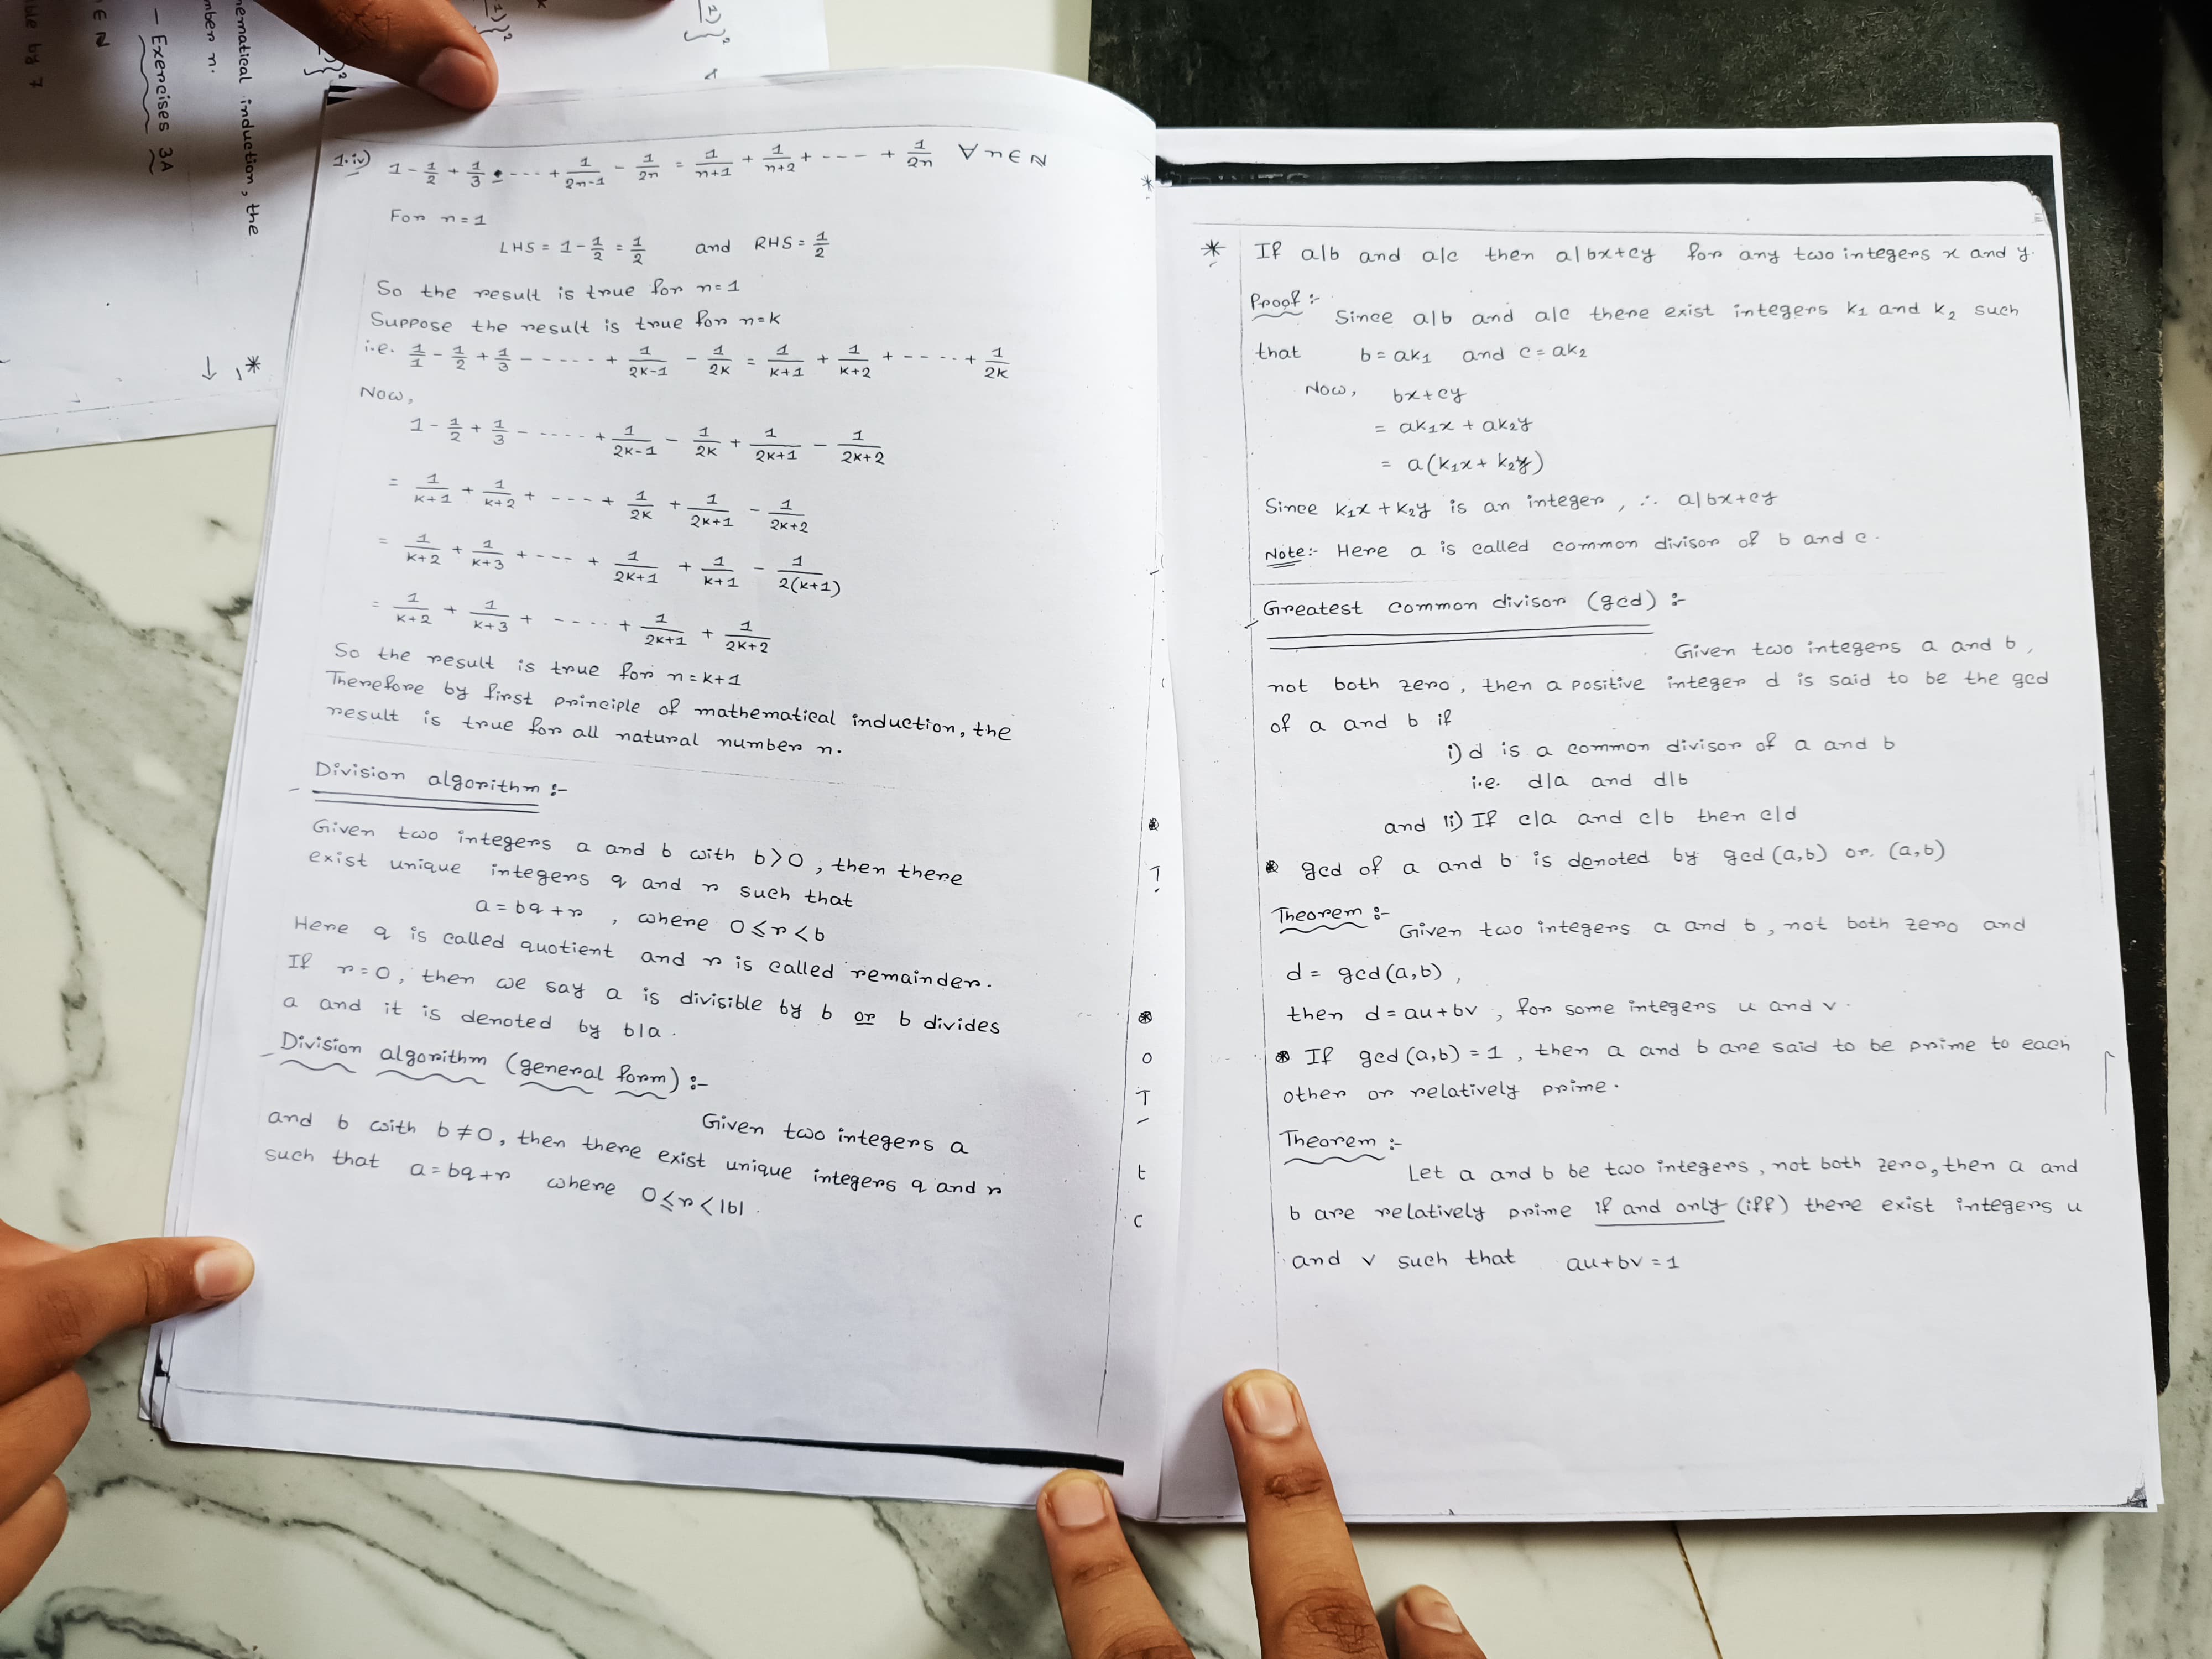 1.iv) 1 - 1/2 + 1/3 - --- + 1/(2n-1) - 1/2n = 1/(n+1) + 1/(n+2) + --- + 1/2n ∀ n ∈ N
For n=1
LHS = 1 - 1/2 = 1/2 and RHS = 1/2
So the result is true for n=1
Suppose the result is true for n=k
i.e. 1/1 - 1/2 + 1/3 ----- + 1/(2k-1) - 1/2k = 1/(k+1) + 1/(k+2) + ---- + 1/2k
Now,
1 - 1/2 + 1/3 - ---- + 1/(2k-1) - 1/2k + 1/(2k+1) - 1/(2k+2)
= 1/(k+1) + 1/(k+2) + ---- + 1/2k + 1/(2k+1) - 1/(2k+2)
= 1/(k+2) + 1/(k+3) + --- + 1/(2k+1) + 1/(k+1) - 1/2(k+1)
= 1/(k+2) + 1/(k+3) + ---- + 1/(2k+1) + 1/(2k+2)
So the result is true for n=k+1
Therefore by first principle of mathematical induction, the
result is true for all natural number n.
Division algorithm :-
Given two integers a and b with b>0, then there
exist unique integers q and r such that
a = bq+r , where 0≤r<b
Here q is called quotient and r is called remainder.
If r=0, then we say a is divisible by b or b divides
a and it is denoted by b|a.
Division algorithm (general form) :-
Given two integers a
and b with b≠0, then there exist unique integers q and r
such that a=bq+r where 0≤r<|b|.
* If a|b and a|c then a|bx+cy for any two integers x and y.
Proof :- Since a|b and a|c there exist integers k₁ and k₂ such
that b=ak₁ and c=ak₂
Now, bx+cy
= ak₁x + ak₂y
= a(k₁x + k₂y)
Since k₁x + k₂y is an integer, ∴ a|bx+cy
Note:- Here a is called common divisor of b and c.
Greatest common divisor (gcd) :-
Given two integers a and b,
not both zero, then a positive integer d is said to be the gcd
of a and b if
i) d is a common divisor of a and b
i.e. d|a and d|b
and ii) If c|a and c|b then c|d
* gcd of a and b is denoted by gcd (a,b) or (a,b)
Theorem :- Given two integers a and b, not both zero and
d = gcd(a,b),
then d=au+bv, for some integers u and v.
* If gcd(a,b)=1, then a and b are said to be prime to each
other or relatively prime.
Theorem :-
Let a and b be two integers, not both zero, then a and
b are relatively prime if and only (iff) there exist integers u
and v such that au+bv=1
Exercises 3A
hematical induction, the
mber n.
∈ N
by 7